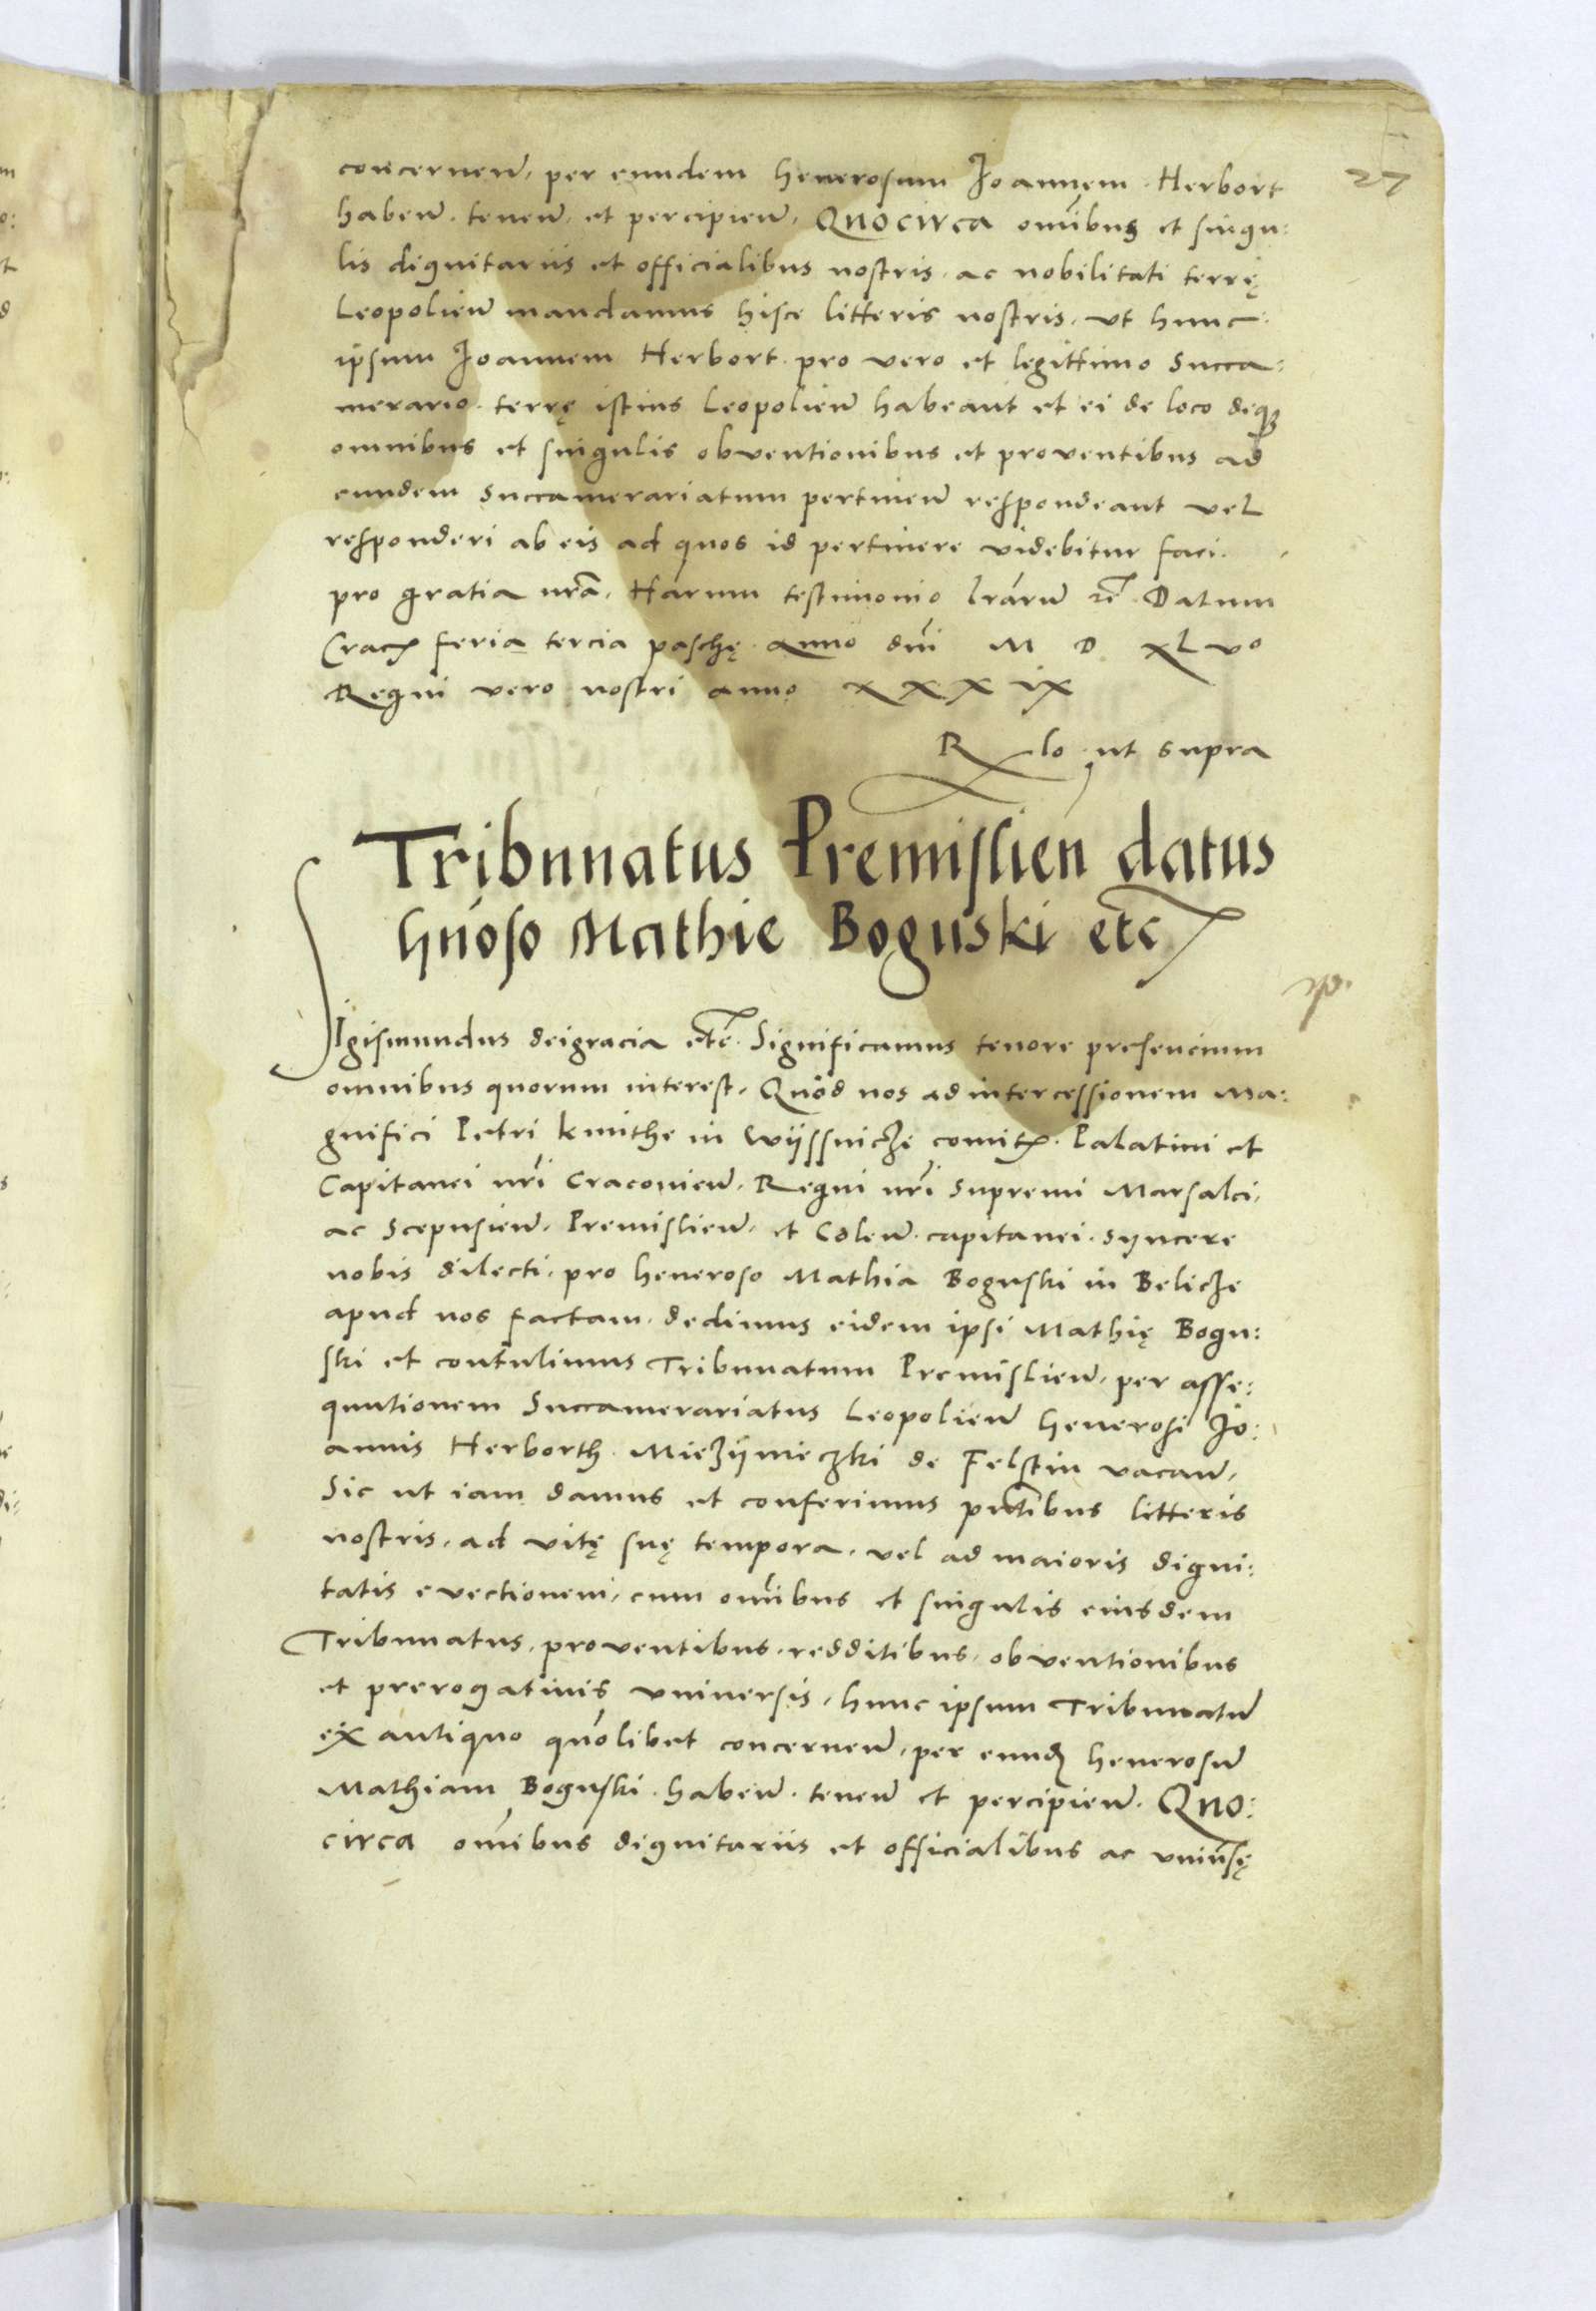 27
concernen̄, per eundem Generosum Joannem Herbort
haben̄. tenen̄. et percipien̄. Quocirca om̄ibus et singu:
lis dignitariis et officialibus nostris. ac nobilitati terrę
Leopolien̄ mandamus hisce litteris nostris. ut hunc
ipsum Joannem Herbort. pro vero et legittimo Succa:
merario. terrę istius Leopolien̄ habeant et ei de loco deq
omnibus et singulis obventionibus et proventibus ad
eundem Succamerariatum pertinen̄ respondeant vel
responderi ab eis ad quos id pertinere videbitur faci.
pro gratia nrā. Harum testimonio lrārū rē. Datum
Crac feria tercia paschę. anno dn̄i M D XL vo
Regni vero nostri anno XXXIX
Rlo ut supra
Tribunatus Premislien̄ datus
Gn̄oso Mathie Boguski etc
SIgismundus deigracia etc̄. Significamus tenore presencium
omnibus quorum interest. Quod nos ad intercessionem Ma:
gnifici Petri kmithe in Wijssnicze comit. Palatini et
Capitanei nr̄i Cracovien̄. Regni nr̄i Supremi Marsalci.
ac Scepusien̄. Premislien̄. et Colen̄. capitanei. Syncere
nobis dilecti. pro Generoso Mathia Boguski in Belicze
apud nos factam. dedimus eidem ipsi Mathię Bogu:
ski et contulimus Tribunatum Premislien̄. per asse:
quutionem Succamerariatus Leopolien̄ Generosi Jo:
annis Herborth Miezÿnieczki de Felstin vacan̄.
Sic ut iam damus et conferimus pn̄tibus litteris
nostris. ad vitę suę tempora. vel ad maioris digni:
tatis evectionem. cum om̄ibus et singulis eiusdem
Tribunatus. proventibus. redditibus. obventionibus
et prerogativis universis. hunc ipsum Tribunatū
ex antiquo quōlibet concernen̄. per eund Generosū
Mathiam Boguski. haben̄. tenen̄ et percipien̄. Quo:
circa om̄ibus dignitariis et officialibus ac univ̄sę